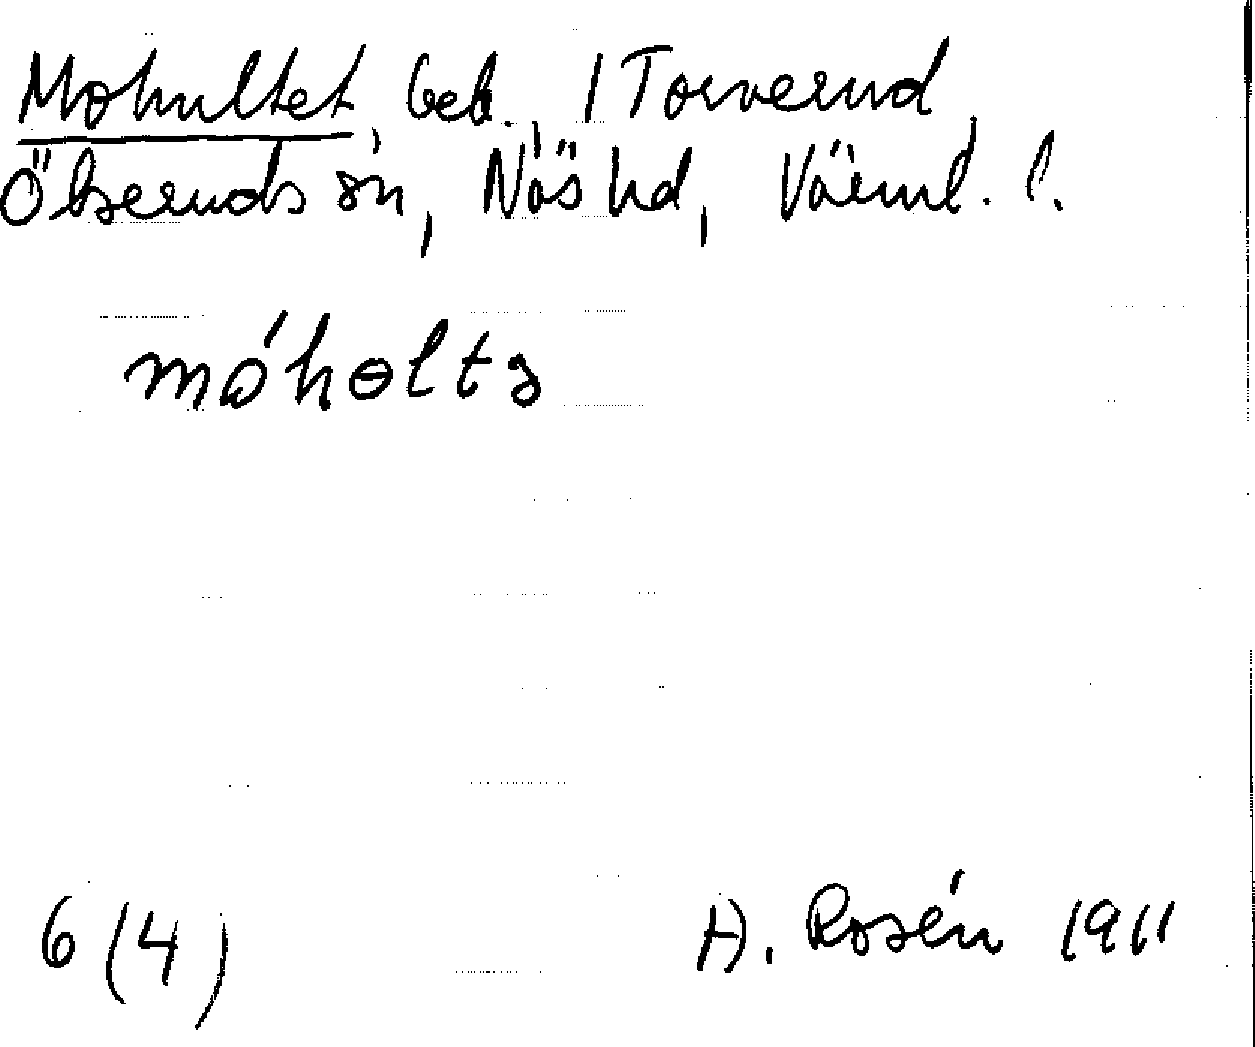 Mohultet, beb., 1 Torverud,
Ölseruds sn, Näs hd, Värml. l.
móhɵltə
6 (4) A. Rosén 1911